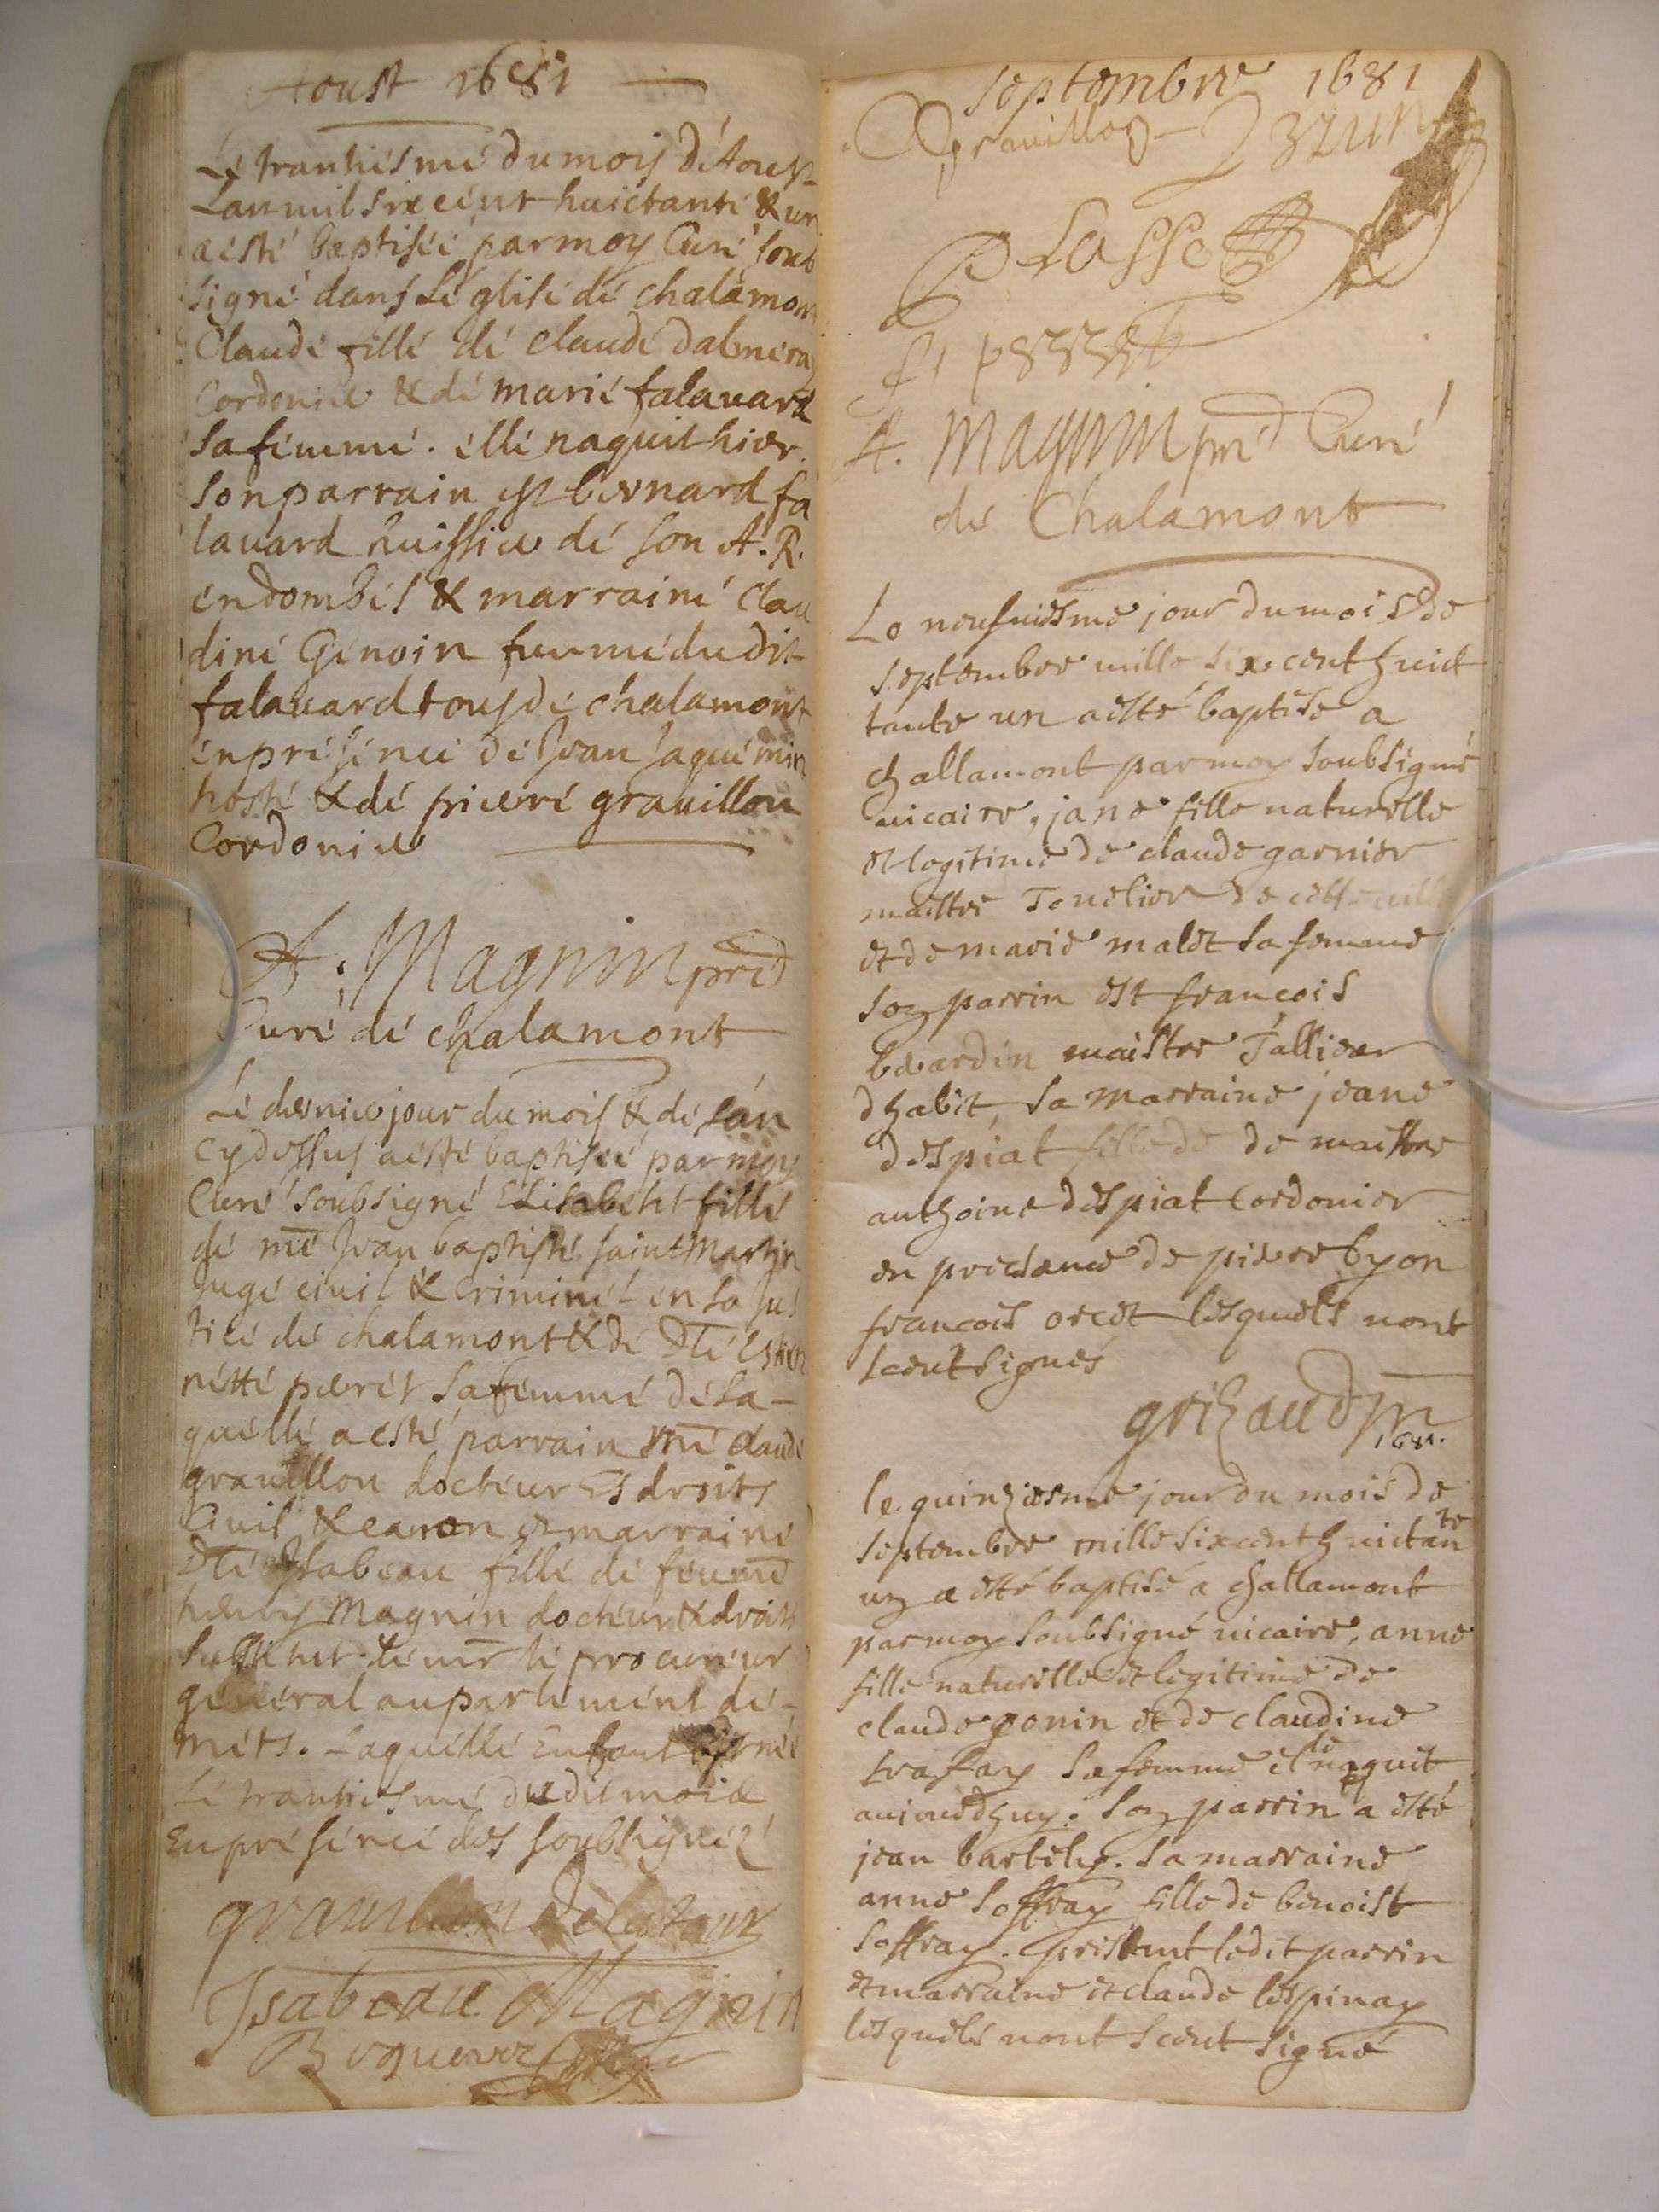 Aoust 1681
Lé trantiesmé du mois d'Aoust
Lan mil six cent huictanté & un
a esté baptiséé par moy Curé soub
signé dans Lé glisé dé chalamont
Claudé fillé dé claudé dalmeray
Cordonier & dé marié falauard
sa fémmé. éllé naquit hier.
son parrain est bernard fa
lauard huissier dé son A. R.
en dombés & marrainé Clau
diné Génoin fémmé dudit
falauard tous dé chalamont
én présencé dé Jean Jaquémin
hosté & dé pierré grauillon
Cordonier
A. Magnin pré
Curé dé chalamont
Lé dernier jour du mois & dé lan
cy dessus a esté baptiséé par moy
Curé soubsigné Elisabeht fillé
dé mé Jean baptisté saint Martin
Jugé ciuil & criminél en la Jus
ticé dé chalamont & dé Dllé Estien
netté péret sa fémmé dé la-
quéllé a esté parrain mé claudé
grauillon doctéur Es droits
Ciuil & canon & marrainé
Dllé Isabeau fillé dé féu mé
henry Magnin doctéur & droits
substitut dé mr lé procuréur
général au parlémént dé-
méts. Laquéllé Enfant
Lé trantiesmé dudit mois &
En présencé des soubsignéz
grauillon
Isabeau Magnin
septembre 1681
Grauillon
Lasse
A. Magnin pré Curé
dé Chalamont
Le neufuiesme jour du mois de
septembre mille six cent huict
tante un a esté baptisé a
challamont par moy soubsigné
uicaire, jane fille naturelle
et legitime de claude garnier
maistre Tonelier de cette uille
et de marie malet sa femme
son parrin est françois
berardin maistre Tallieur
dhabit, sa marraine jeane
despiat fille de de maistre
anthoine despiat Cordonier
en presance de pierre byon
francois oret lesquels nont
sceut signés
grizaud
le quinziesme jour du mois de
septembre mille six cent huictan
te
un a esté baptisé a challamont
par moy soubsigné uicaire, anne
fille naturelle et legitime de
claude gonin et de claudine
trafay sa femme el naquit
le
aujourdhuy. son parrin a esté
jean barthely. sa marraine
anne soffray fille de benoist
soffray. present ledit parrin
et marraine et claude lespinay
lesquels nont sceut signé